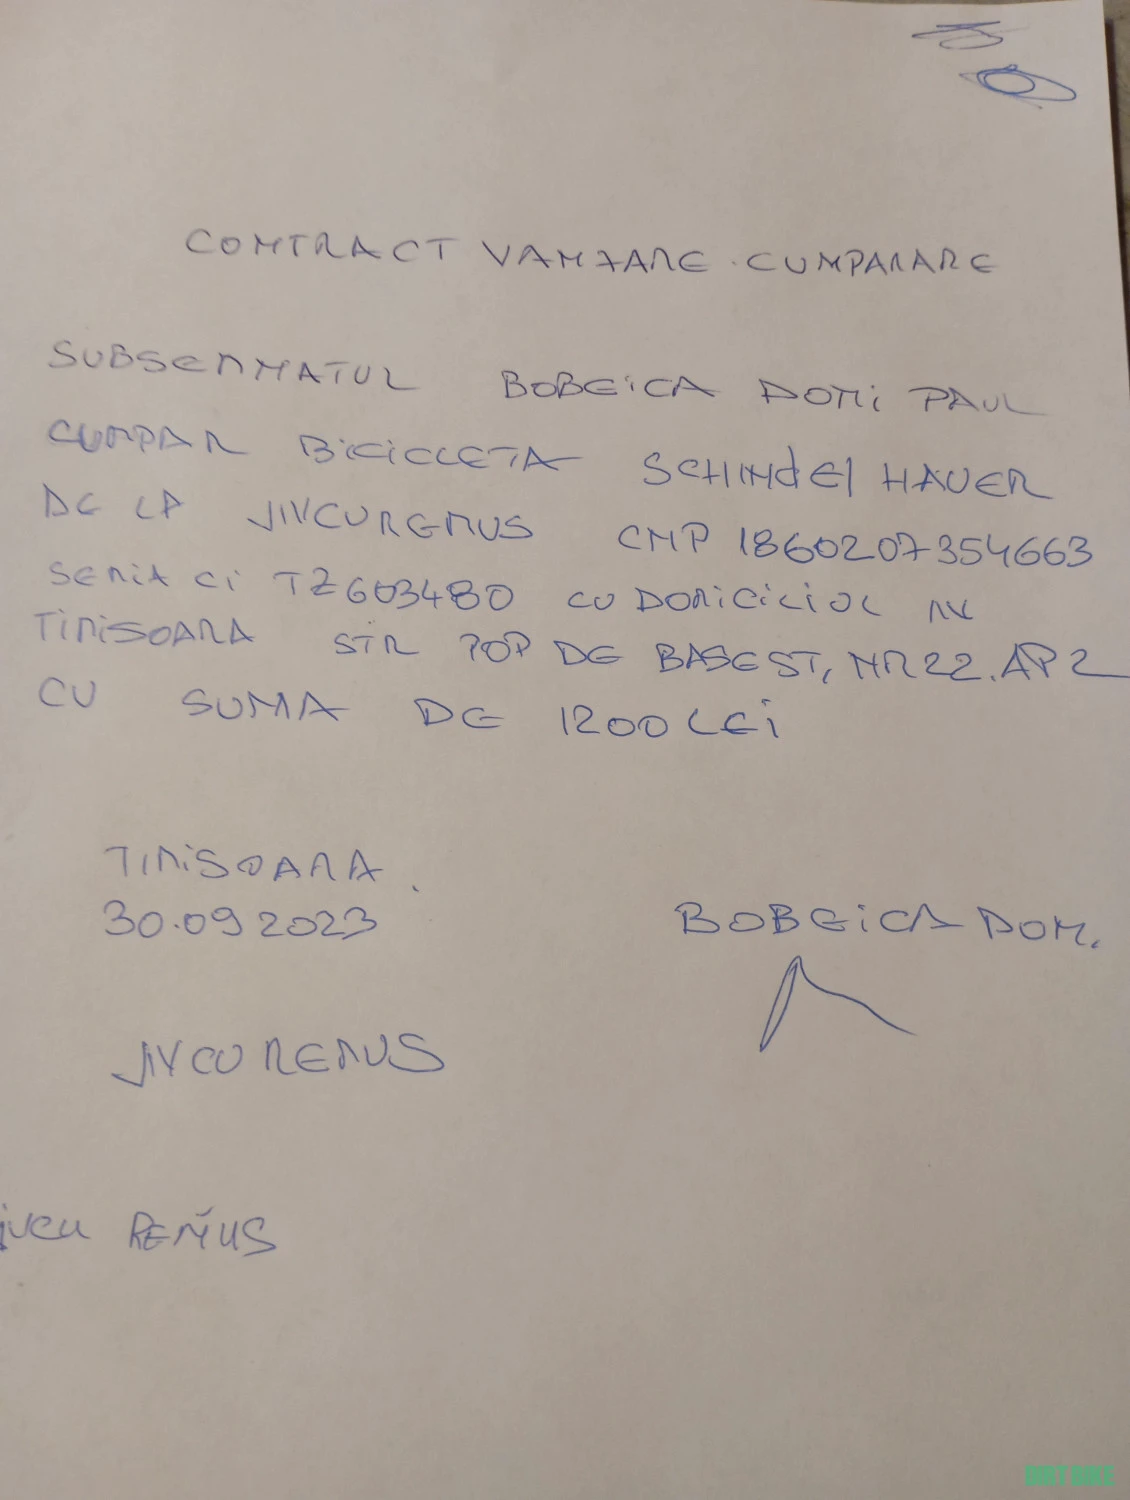 CONTRACT VANZARE-CUMPARARE
SUBSEMNATUL BOBEICA DOMI PAUL
CUMPAR BICICLETA SCHINDELHAUER
DE LA JIVCU REMUS CNP 1860207354663
SERIA CI TZ603480 CU DOMICILIUL IN
TIMISOARA STR POP DE BASEST, NR 22. AP 2
CU SUMA DE 1200 LEI
TIMISOARA.
30.09 2023
BOBEICA DOM.
JIVCU REMUS
REMUS